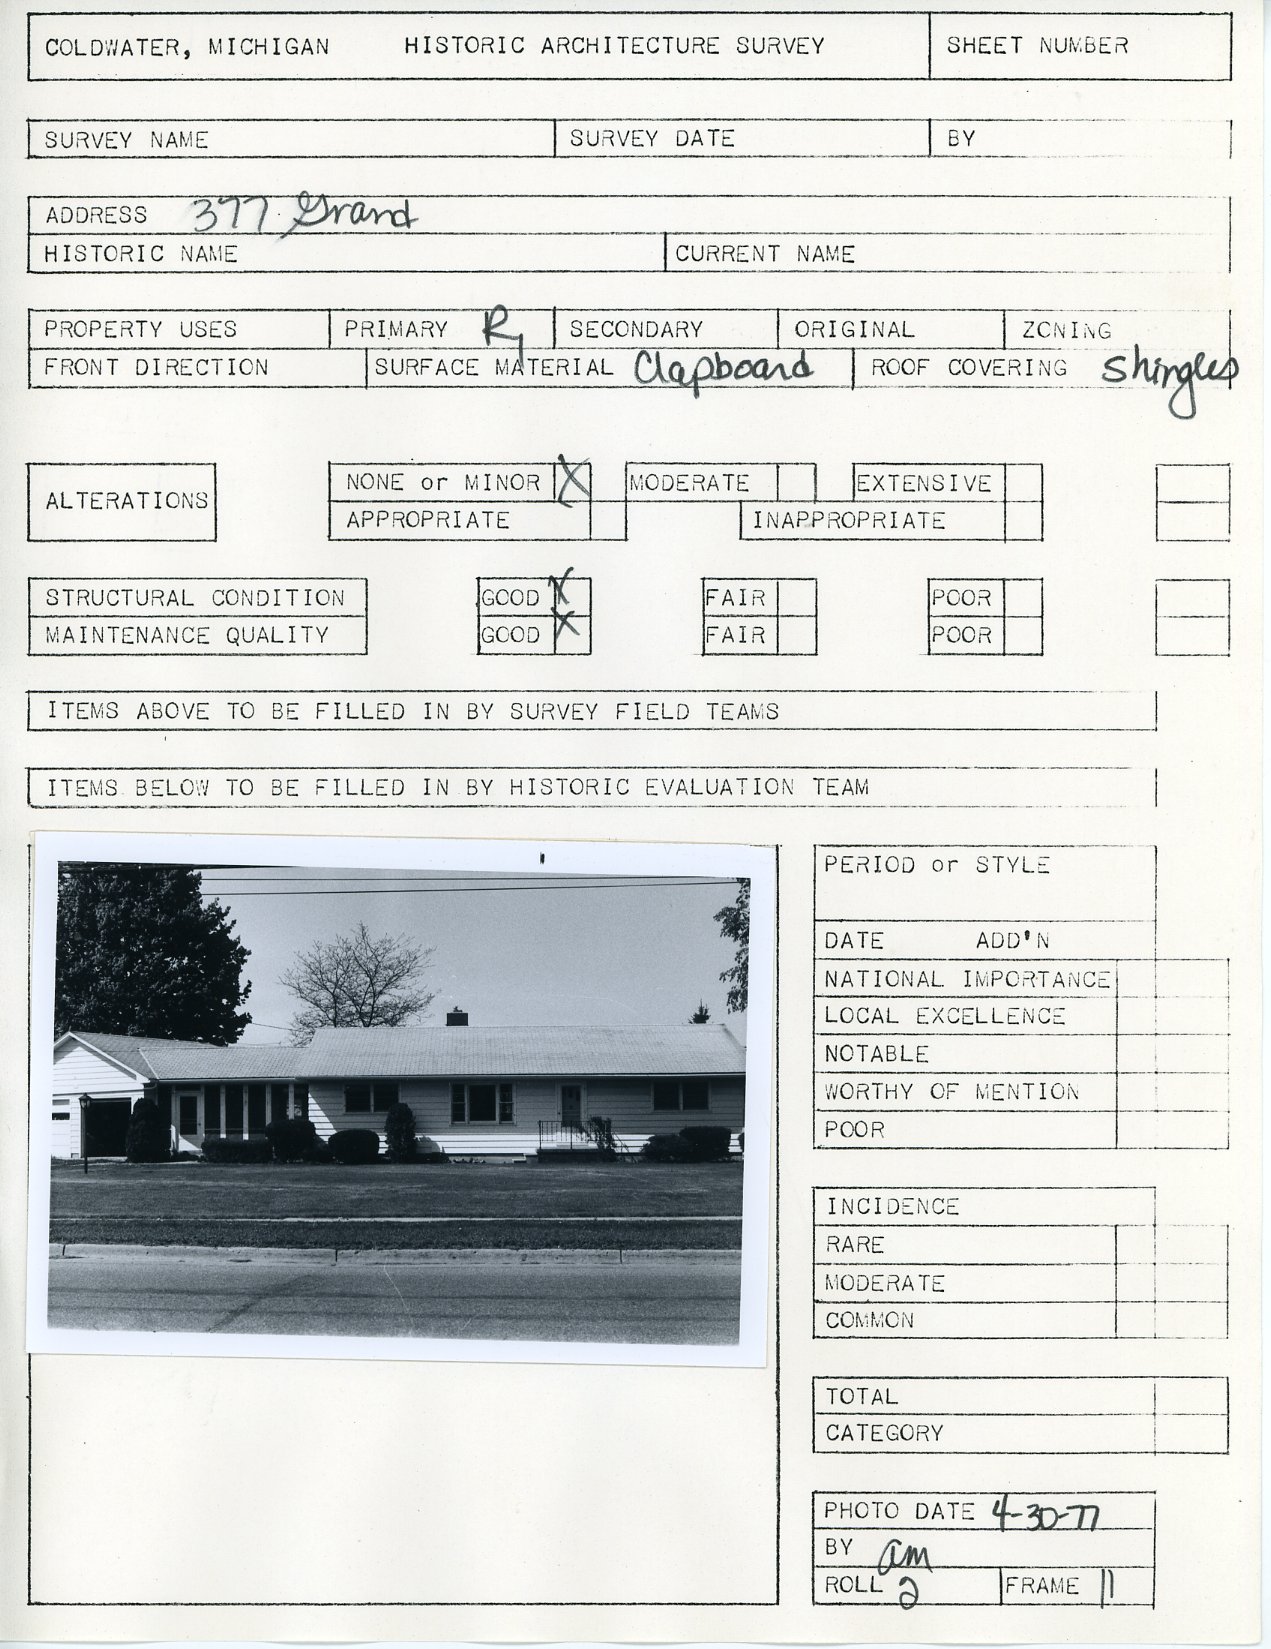 COLDWATER, MICHIGAN HISTORIC ARCHITECTURE SURVEY SHEET NUMBER
SURVEY NAME SURVEY DATE BY
ADDRESS 377 Grand
HISTORIC NAME CURRENT NAME
PROPERTY USES PRIMARY R1 SECONDARY ORIGINAL ZONING
FRONT DIRECTION SURFACE MATERIAL Clapboard ROOF COVERING Shingles
ALTERATIONS NONE or MINOR X MODERATE EXTENSIVE
APPROPRIATE INAPPROPRIATE
STRUCTURAL CONDITION GOOD X FAIR POOR
MAINTENANCE QUALITY GOOD X FAIR POOR
ITEMS ABOVE TO BE FILLED IN BY SURVEY FIELD TEAMS
ITEMS BELOW TO BE FILLED IN BY HISTORIC EVALUATION TEAM
PERIOD or STYLE
DATE ADD'N
NATIONAL IMPORTANCE
LOCAL EXCELLENCE
NOTABLE
WORTHY OF MENTION
POOR
INCIDENCE
RARE
MODERATE
COMMON
TOTAL
CATEGORY
PHOTO DATE 4-30-77
BY am
ROLL 2 FRAME 11